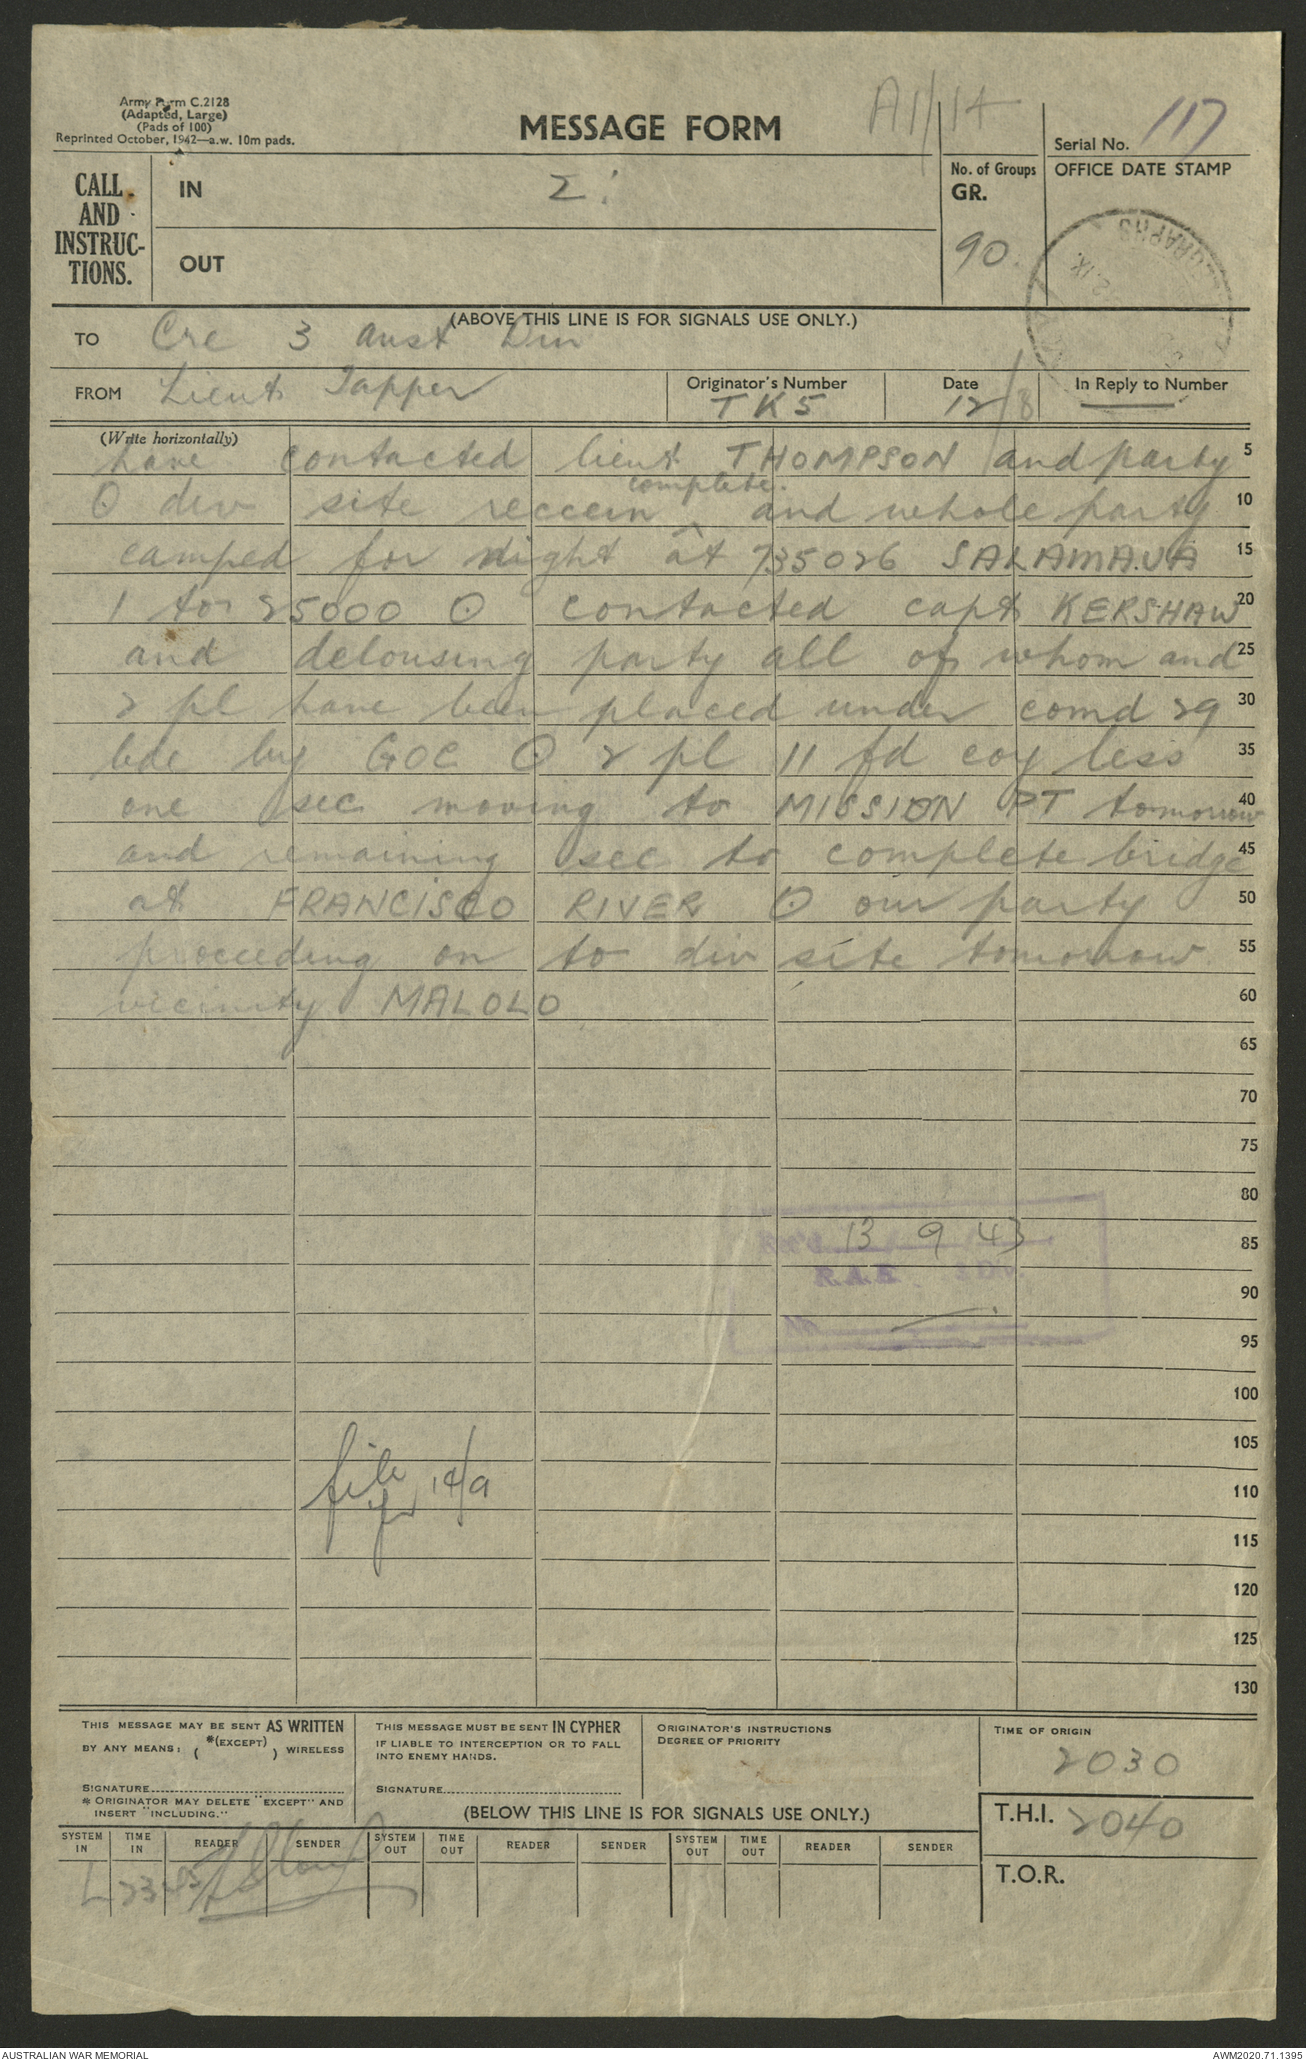 Army Form C.2128
(Adapted, Large)
(Pads of 100)
Reprinted October, 1942—a.w. 10m pads.
MESSAGE FORM
A1/14
Serial No. 117
CALL AND INSTRUC-TIONS.
IN
OUT
No. of Groups
GR.
90.
OFFICE DATE STAMP
(ABOVE THIS LINE IS FOR SIGNALS USE ONLY.)
TO Cre 3 Aust Div
FROM Lieut Tapper
Originator's Number
TK5
Date
12/8
In Reply to Number
(Write horizontally)
have contacted lieut THOMPSON and party 5
O div site reccein complete. and whole party 10
camped for night at 735026 SALAMAUA 15
1 to 25000 O contacted capt KERSHAW 20
and delousing party all of whom and 25
2 pl have been placed under comd 29 30
bde by GOC O 2 pl 11 fd coy less 35
one sec moving to MISSION PT tomorrow 40
and remaining sec to complete bridge 45
at FRANCISCO RIVER O our party 50
proceeding on to div site tomorrow 55
vicinity MALOLO 60
65
70
75
80
Rec'd 13 9 43 85
R.A.E. 3 Div.
90
No.
95
100
105
file 14/9 110
115
120
125
130
THIS MESSAGE MAY BE SENT AS WRITTEN
BY ANY MEANS: ( *(EXCEPT) ) WIRELESS
SIGNATURE
* ORIGINATOR MAY DELETE "EXCEPT" AND
INSERT "INCLUDING."
THIS MESSAGE MUST BE SENT IN CYPHER
IF LIABLE TO INTERCEPTION OR TO FALL
INTO ENEMY HANDS.
SIGNATURE
ORIGINATOR'S INSTRUCTIONS
DEGREE OF PRIORITY
TIME OF ORIGIN
2030
(BELOW THIS LINE IS FOR SIGNALS USE ONLY.)
T.H.I. 2040
T.O.R.
SYSTEM IN TIME IN READER SENDER SYSTEM OUT TIME OUT READER SENDER SYSTEM OUT TIME OUT READER SENDER
L 2345
AUSTRALIAN WAR MEMORIAL AWM2020.71.1395